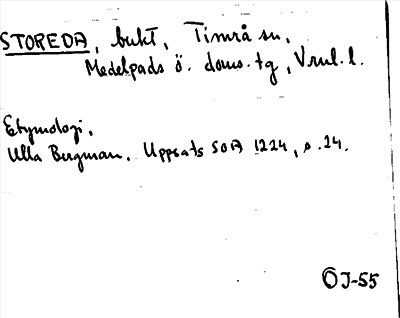 STOREDA, bukt, Timrå sn,
Medelpads ö. doms. tg, Vnrl. l.
Etymologi.
Ulla Bergman. Uppsats SOA 1224, s. 24.
ÖJ-55